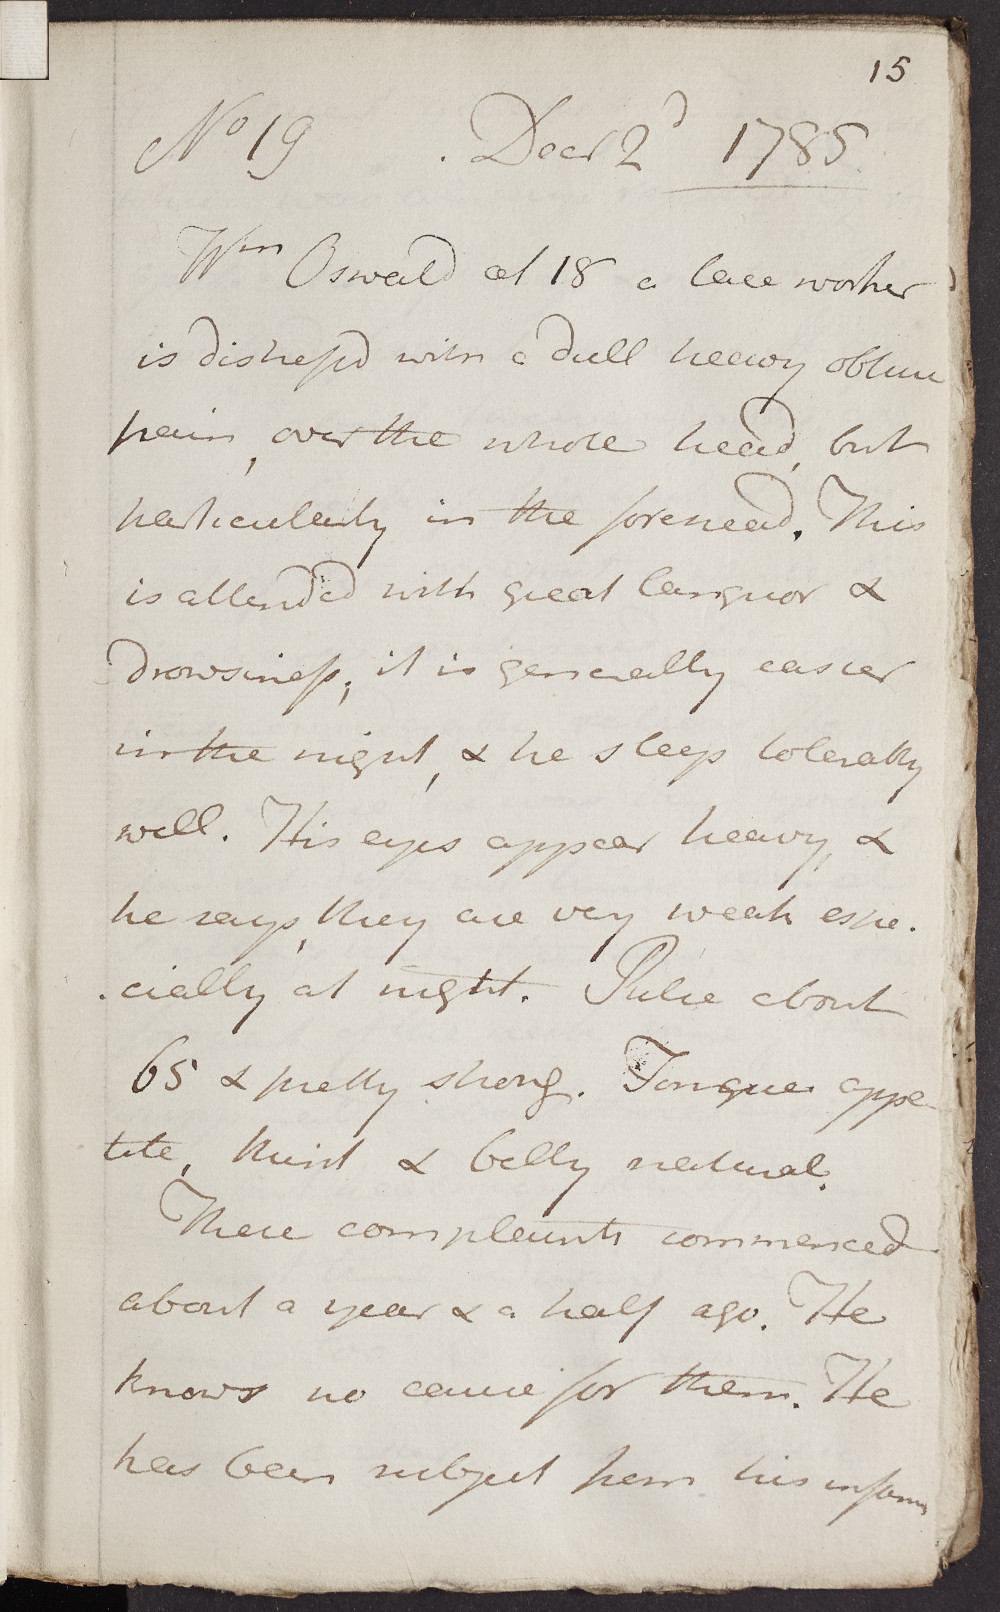 15
No 19 . Decr 2d 1785
Wm Oswald æt 18 a lace worker
is distressd with a dull heavy obtuse
pain, over the whole head, but
particularly in the forehead. This
is attended with great languor &
drowsiness; it is generally easier
in the night, & he sleeps tolerably
well. His eyes appear heavy, &
he says, they are very weak espe-
-cially at night. Pulse about
65 & pretty strong. Tongue appe-
tite, thirst & belly natural.
These complaints commenced
about a year & a half ago. He
knows no cause for them. He
has been subject from his infancy